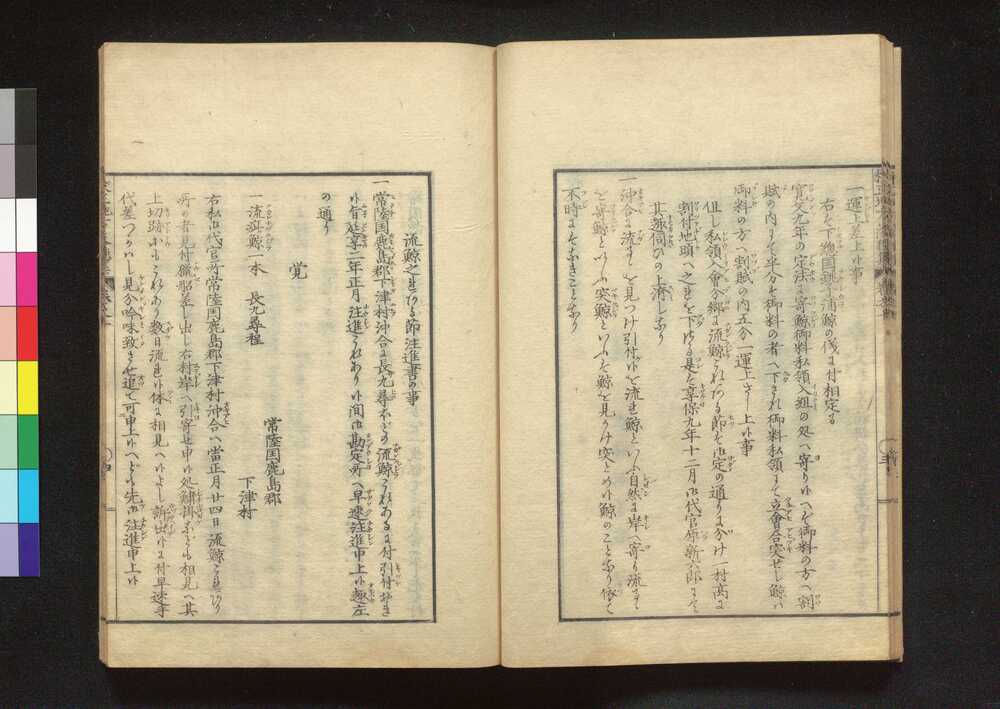 一運上差上候事
右は下総国銚子浦鯨の儀に付相定る
官天九年の定法は寄鯨御料私領入組の処へ寄り候へば御料の方へ割
賦の内にて半分を御料の者へ下され御料私領にて立會合突せし鯨は
御料の方へ割賦の内五分一運上さし上候事
但し私領入會分郷は流鯨これある節も御定の通りに分け一村高に
割付地頭へ之を下候是を享保九年十二月御代官原新六郎にて
其趣伺ひの上済しなり
一沖合に流ますを見つけ引付候を流鯨といふ自然に岸へ寄り流ます
を寄鯨といふ突鯨といふは鯨を見かけ突とめ候鯨のことなり依て
不時にはなきことなり
流鯨之ある節注進書の事
一常陸国鹿島郡下津村沖合に長九尋ほどの流鯨これあるに付引付おき
候旨延享二年正月注進これあり候間御勘定所へ早速注進申上候趣左
の通り
覚
一流斃鯨一本 長九尋程
常陸国鹿島郡
下津村
右私御代官所常陸国鹿島郡下津村沖合へ當正月廿四日流鯨これあり
所の者見付獵船差し出し右村岸へ引寄せ申候処鯖掛りなども相見へ其
上切跡等もこれあり数日流れ候体に相見へ候よし訴出候に付早速手
代差つかはし見分吟味致させ追て可申上候へども先御注進申上候